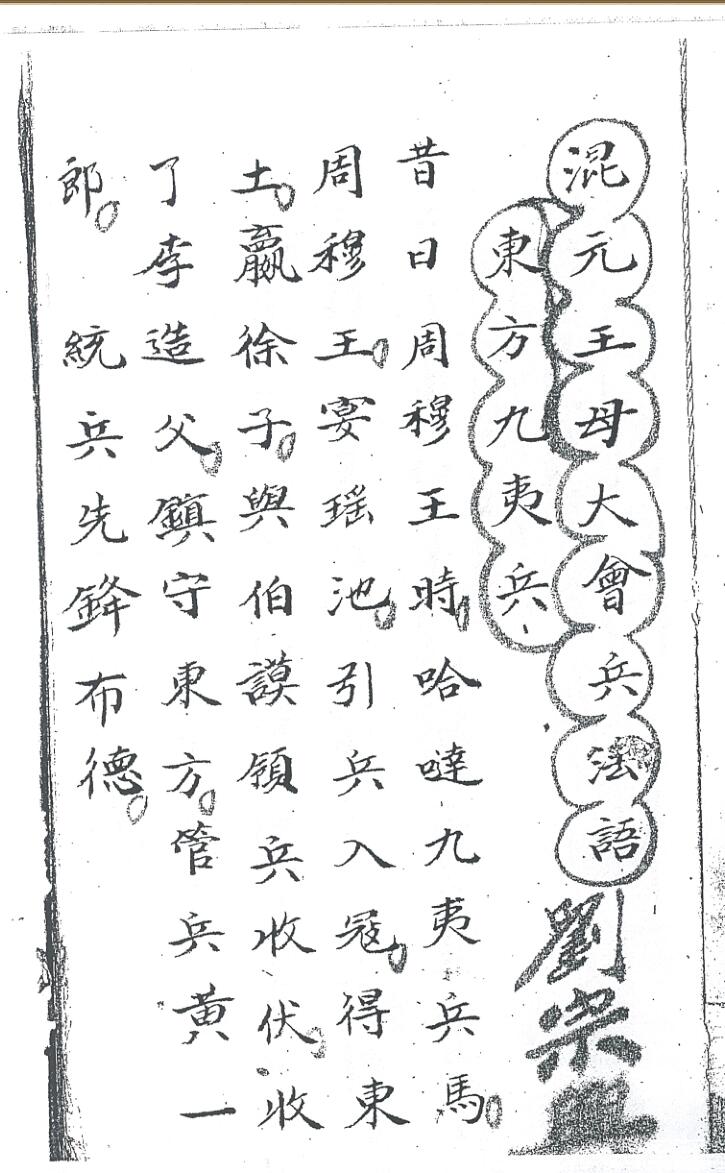 混元王母大會兵法語
劉宗
東方九夷兵
昔日周穆王時哈噠九夷兵馬
周穆王宴瑤池引兵入冦得東
土嬴徐子與伯謨領兵收伏收
了李造父鎮守東方管兵黃一
郎統兵先鋒布德